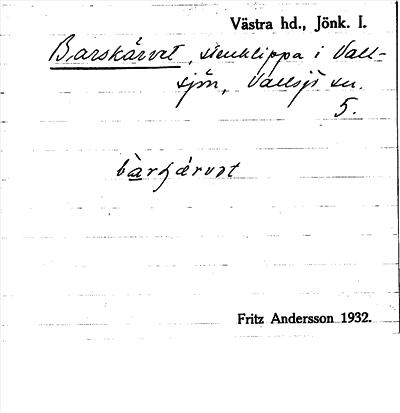 Västra hd., Jönk. l.
Barskärvet, stenklippa i Vall-
sjön, Vallsjö sn.
5.
Fritz Andersson 1932.